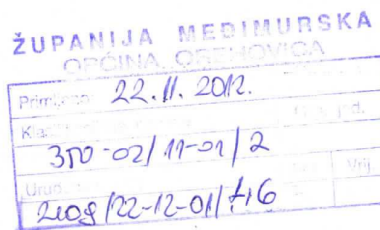 ŽUPANIJA MEĐIMURSKA
OPĆINA OREHOVICA
Primljeno: 22.11.2012.
350-02/11-01/2
2109/22-12-01/
Vrij